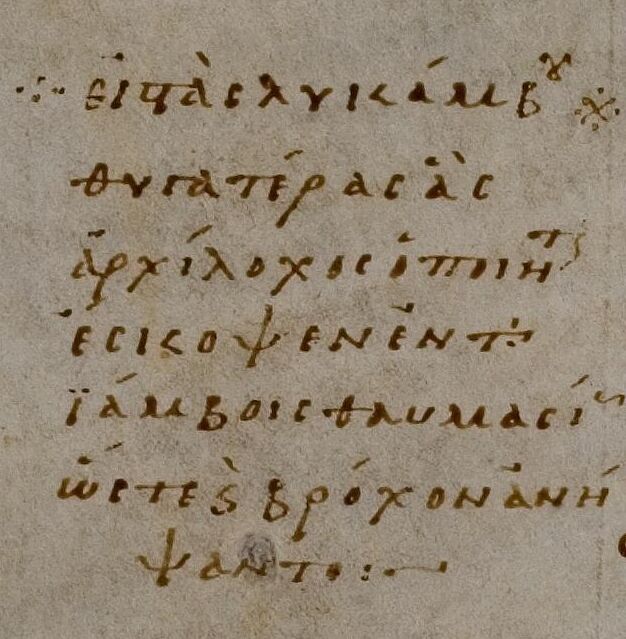 εἰς τὰς λυκάμβȣ
θυγατέρας ἃς
ἀρχίλοχος ὁ ποιητ
ἔσκοψεν ἐν τ
ϊάμβοις θαυμασί
ὥστε ϗ βρόχον ἀνή
ψαντο: